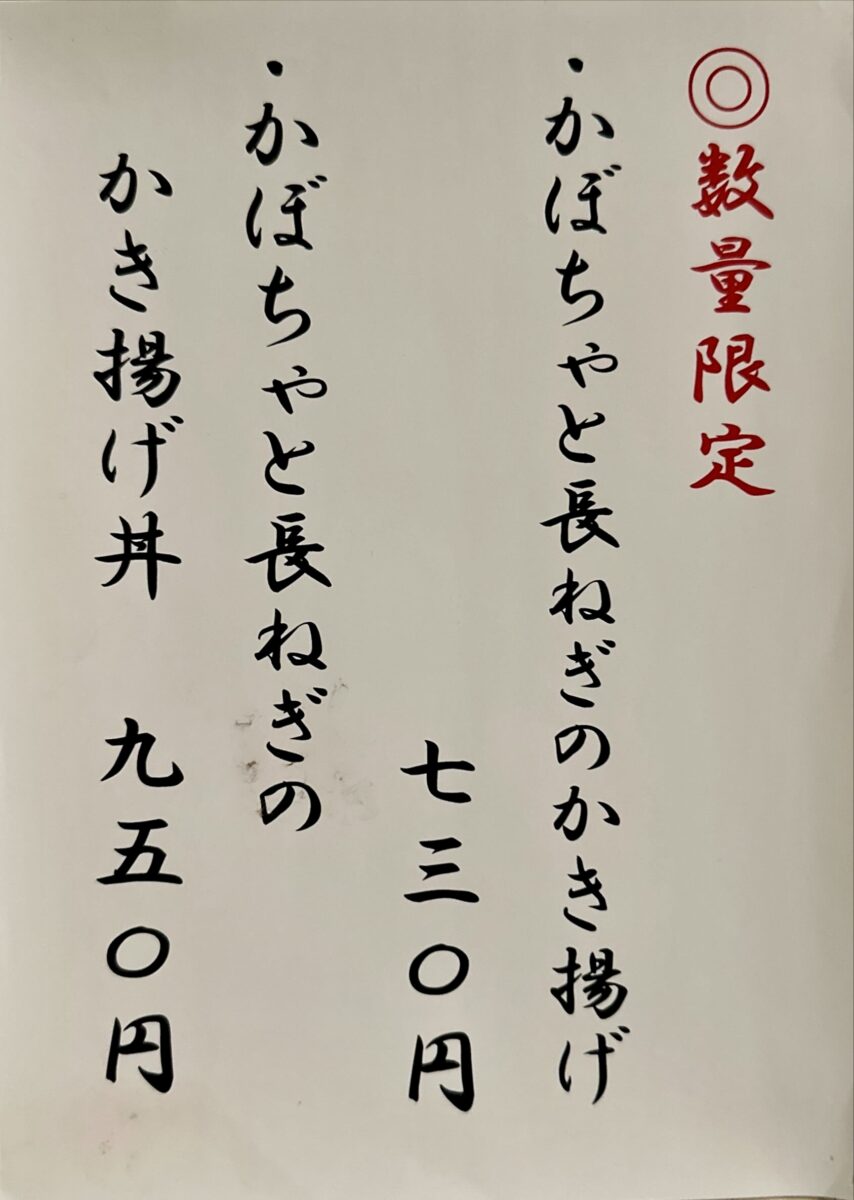 ◎数量限定
・かぼちゃと長ねぎのかき揚げ
七三〇円
・かぼちゃと長ねぎの
かき揚げ丼 九五〇円